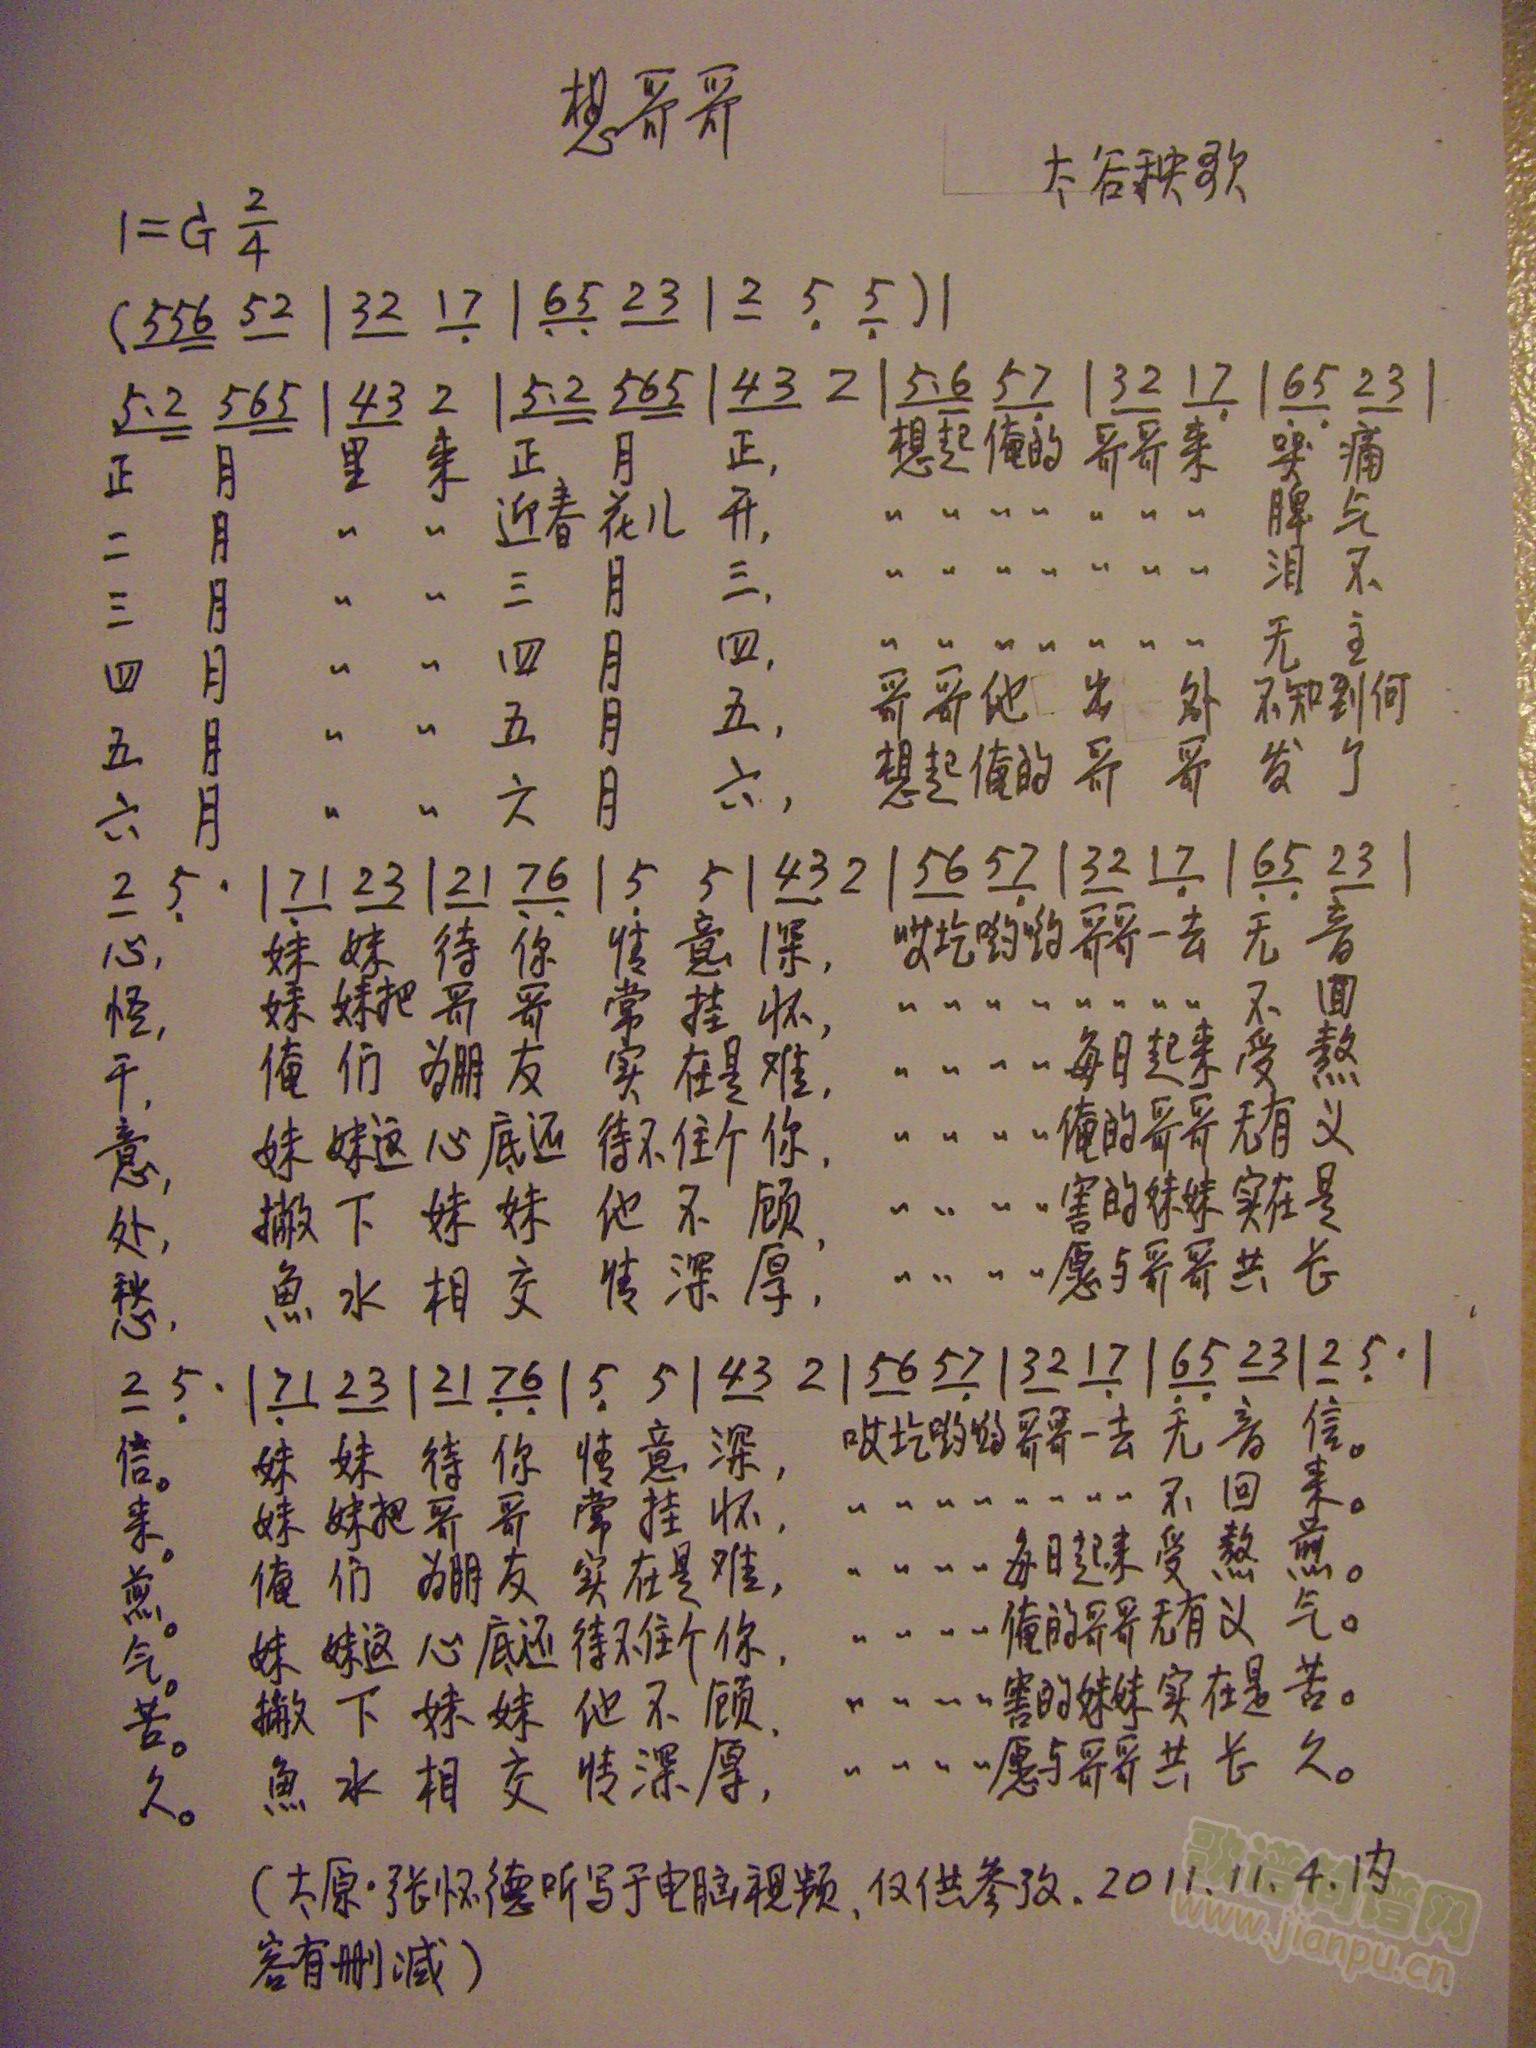 想哥哥
太谷秧歌
1=G 2/4
(556 52 | 32 17 | 65 23 | 2 5 5 )|
5.2 565 | 43 2 | 5.2 565 | 43 2 | 5.6 57 | 32 17 | 65 23 |
正 月 里 来 正 月 正, 想起俺的 哥哥来 哭 痛
二 月 〃 〃 迎春 花儿 开, 〃 〃 〃 〃 〃 〃 〃 脾 气
三 月 〃 〃 三 月 三, 〃 〃 〃 〃 〃 〃 〃 泪 不
四 月 〃 〃 四 月 四, 〃 〃 〃 〃 〃 〃 〃 无 主
五 月 〃 〃 五 月 五, 哥哥他 出 外 不知到何
六 月 〃 〃 六 月 六, 想起俺的 哥 哥 发 了
2 5 · | 71 23 | 21 76 | 5 5 | 43 2 | 56 57 | 32 17 | 65 23 |
心, 妹 妹 待 你 情 意 深, 哎圪哟哟 哥哥一去 无 音
怪, 妹 妹把 哥 哥 常 挂 怀, 〃 〃 〃 〃 〃 〃 〃 〃 不 回
干, 俺 们 为朋 友 实 在是 难, 〃 〃 〃 〃 每日起来 受 熬
意, 妹 妹这 心 底还 待不住个 你, 〃 〃 〃 〃 俺的哥哥 无有 义
处, 撇 下 妹 妹 他 不 顾, 〃 〃 〃 〃 害的妹妹 实在 是
愁, 魚 水 相 交 情 深 厚, 〃 〃 〃 〃 愿与哥哥 共 长
2 5 · | 71 23 | 21 76 | 5 5 | 43 2 | 56 57 | 32 17 | 65 23 | 2 5 · |
信。 妹 妹 待 你 情 意 深, 哎圪哟哟 哥哥一去 无 音 信。
来。 妹 妹把 哥 哥 常 挂 怀, 〃 〃 〃 〃 〃 〃 〃 〃 不 回 来。
煎。 俺 们 为朋 友 实 在是 难, 〃 〃 〃 〃 每日起来 受 熬 煎。
气。 妹 妹这 心 底还 待不住个 你, 〃 〃 〃 〃 俺的哥哥 无有 义 气。
苦。 撇 下 妹 妹 他 不 顾, 〃 〃 〃 〃 害的妹妹 实 在是 苦。
久。 魚 水 相 交 情 深 厚, 〃 〃 〃 〃 愿与哥哥 共 长 久。
(太原·张怀德听写于电脑视频、仅供参考. 2011.11.4.内
容有删减)
歌谱简谱网
www.jianpu.cn